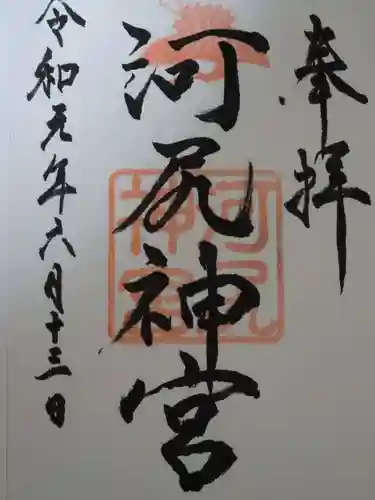 奉拝
河尻神宮
河尻
神宮
令和元年六月十三日